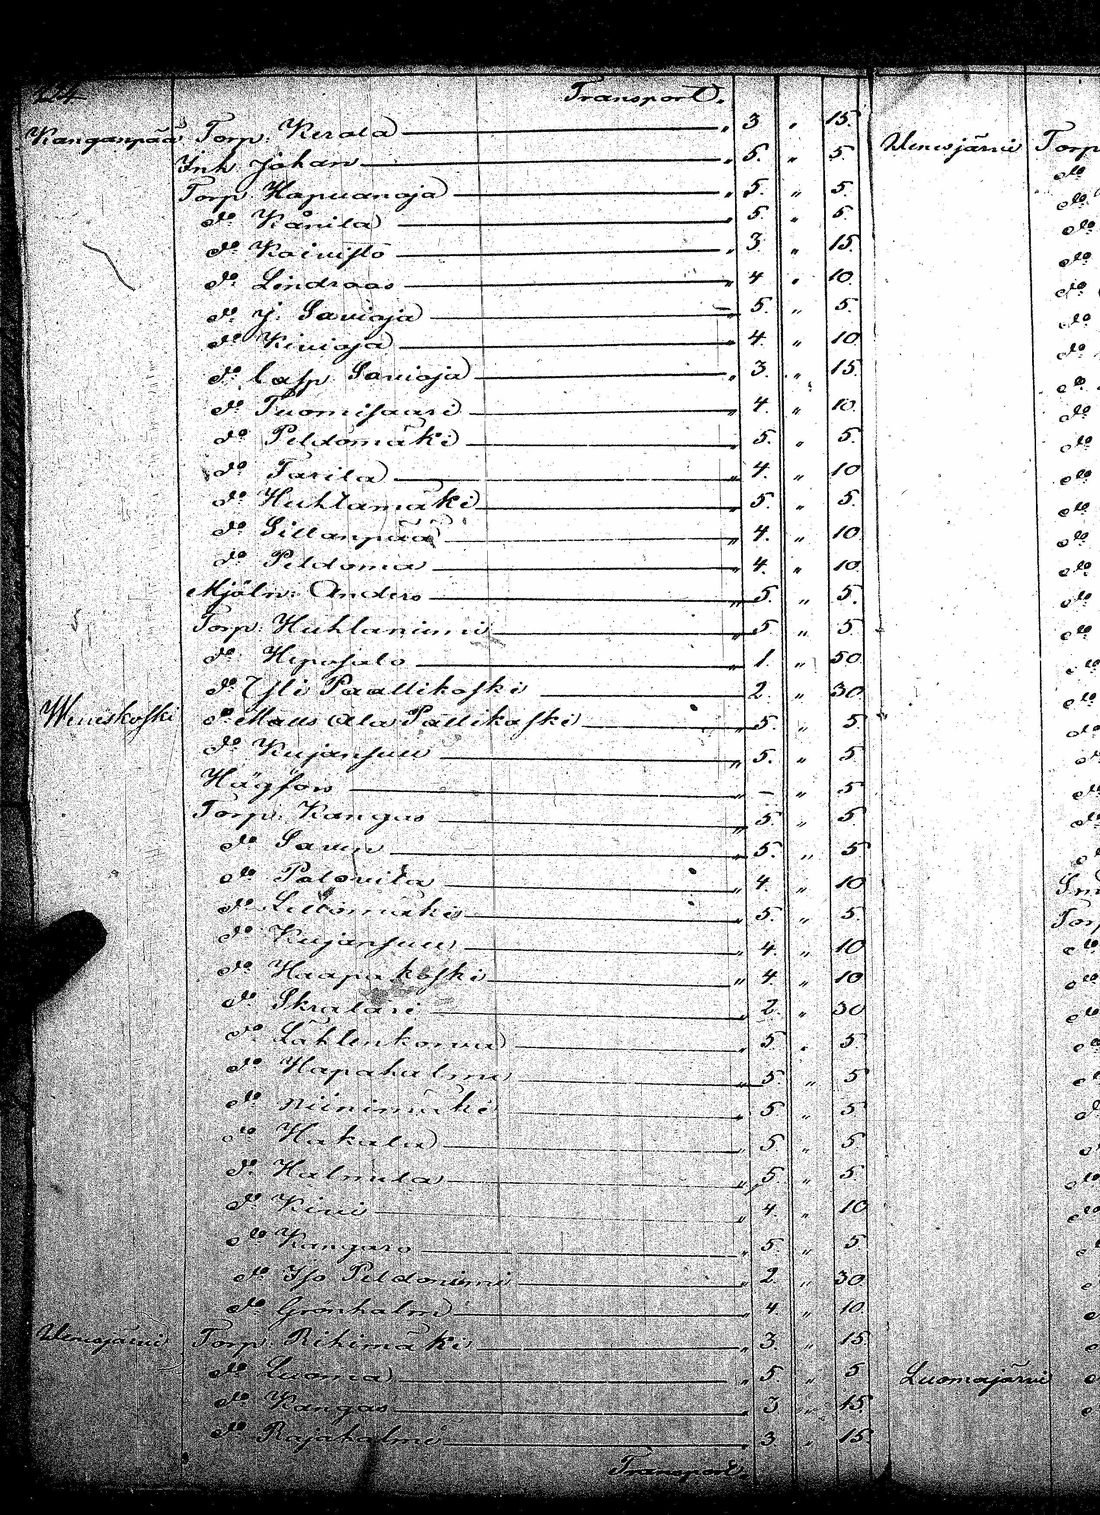 224
Transport.
Kanganpää Torp. Kerala " 3 " 15.
Inh. Johan " 5. " 5.
Torp. Hapuanoja " 5. " 5.
do Kånila " 5. " 5.
do Koivisto " 3. " 15.
do Lindroos " 4 " 10.
do J. Savioja " 5. " 5.
do Kivioja " 4. " 10.
do Casp. Savioja " 3. " 15.
do Tuomisaari " 4. " 10.
do Peldomäki " 5. " 5.
do Tarila " 4. " 10
do Huhtamäki " 5. " 5.
do Sillanpää " 4. " 10
do Peldoma " 4. " 10.
Mjöln. Anders " 5. " 5.
Torp. Huhtaniemi " 5 " 5.
do Heposalo " 1. " 50
do Ysli Paallikoski 2. " 30
Weneskoski do Matts Ala Pallikoski " 5. " 5
do Kujansuu " 5. " 5
Hägfors " – " 5
Torp. Kangas " 5 " 5
do Savu " 5. " 5
do Palovita " 4. " 10
do Lillomäki " 5. " 5.
do Kujansuu " 4. " 10
do Haapakoski " 4. " 10
do Skratari " 2. " 30
do Lähtenkorva " 5 " 5
do Hapahalme " 5 " 5
do Niinimäki " 5 " 5
do Hakala " 5 " 5
do Halmela " 5 " 5
do Kivi " 4. " 10
do Kangars " 5 " 5
do Iso Peldoniemi " 2. " 30
do Grönholm " 4. " 10
Wenesjärvi Torp. Rihimäki " 3. " 15
do Luoma " 5 " 5
do Kangas " 3 " 15
do Rajahalme " 3 " 15
Transport.
Wenesjärvi Torp
do
do
do
do
do
Torp
Luomajärvi